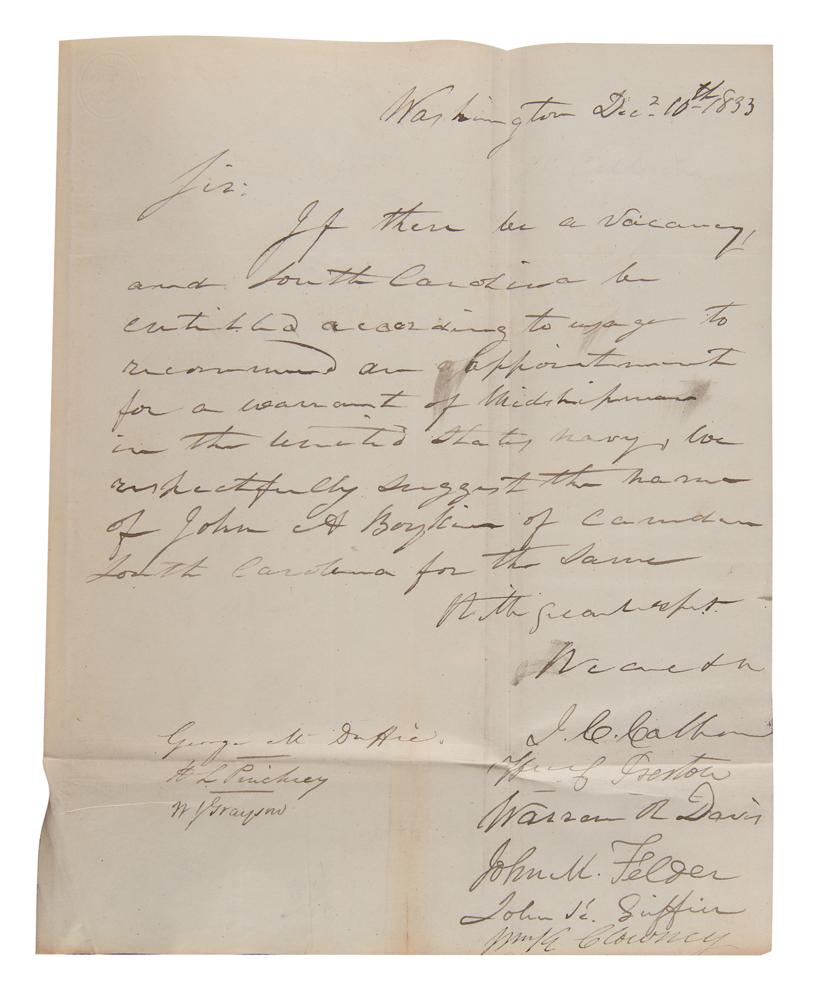 Washington Decr. 10th 1833
Sir:
If there be a vacancy,
and South Carolina be
entitled according to usage to
recommend an appointment
for a warrant of Midshipman
in the United States Navy, we
respectfully suggest the name
of John A Boykin of Camden
South Carolina for the same
With great respt.
We are &c
J. C. Calhoun
Wm C Preston
Warren R Davis
John M. Felder
John K. Griffin
Wm K Clowney
George McDuffie.
H L Pinckney
W J Grayson